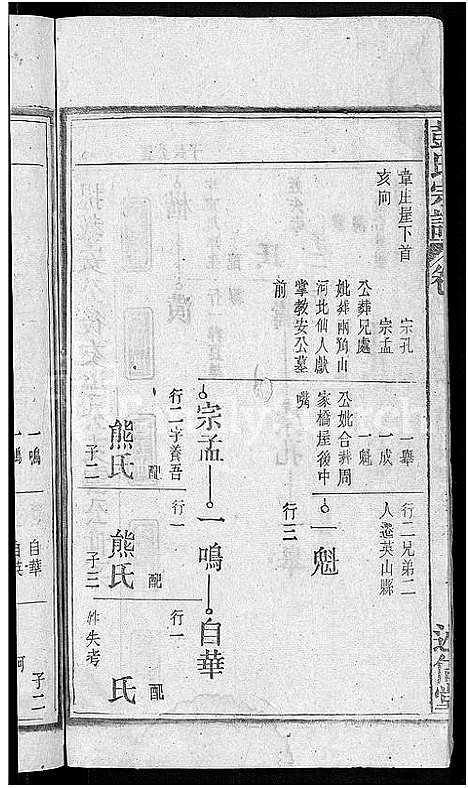 彭氏宗譜 卷
述信堂
章庄崖下首
亥向
宗孔
宗孟
公葬兄處
妣葬兩角山
河北仙人獻
掌教安公墓
前
一舉
一成
一魁
公妣合葬周
家橋屋後中
嘴
行二兄弟二
人遷英山縣
一魁
行三
宗孟
一鳴
自華
行二字養吾
配
熊氏
子二
行一
配
熊氏
子三
行一
配
氏
姓失考
一鳴
自華
自英
子二